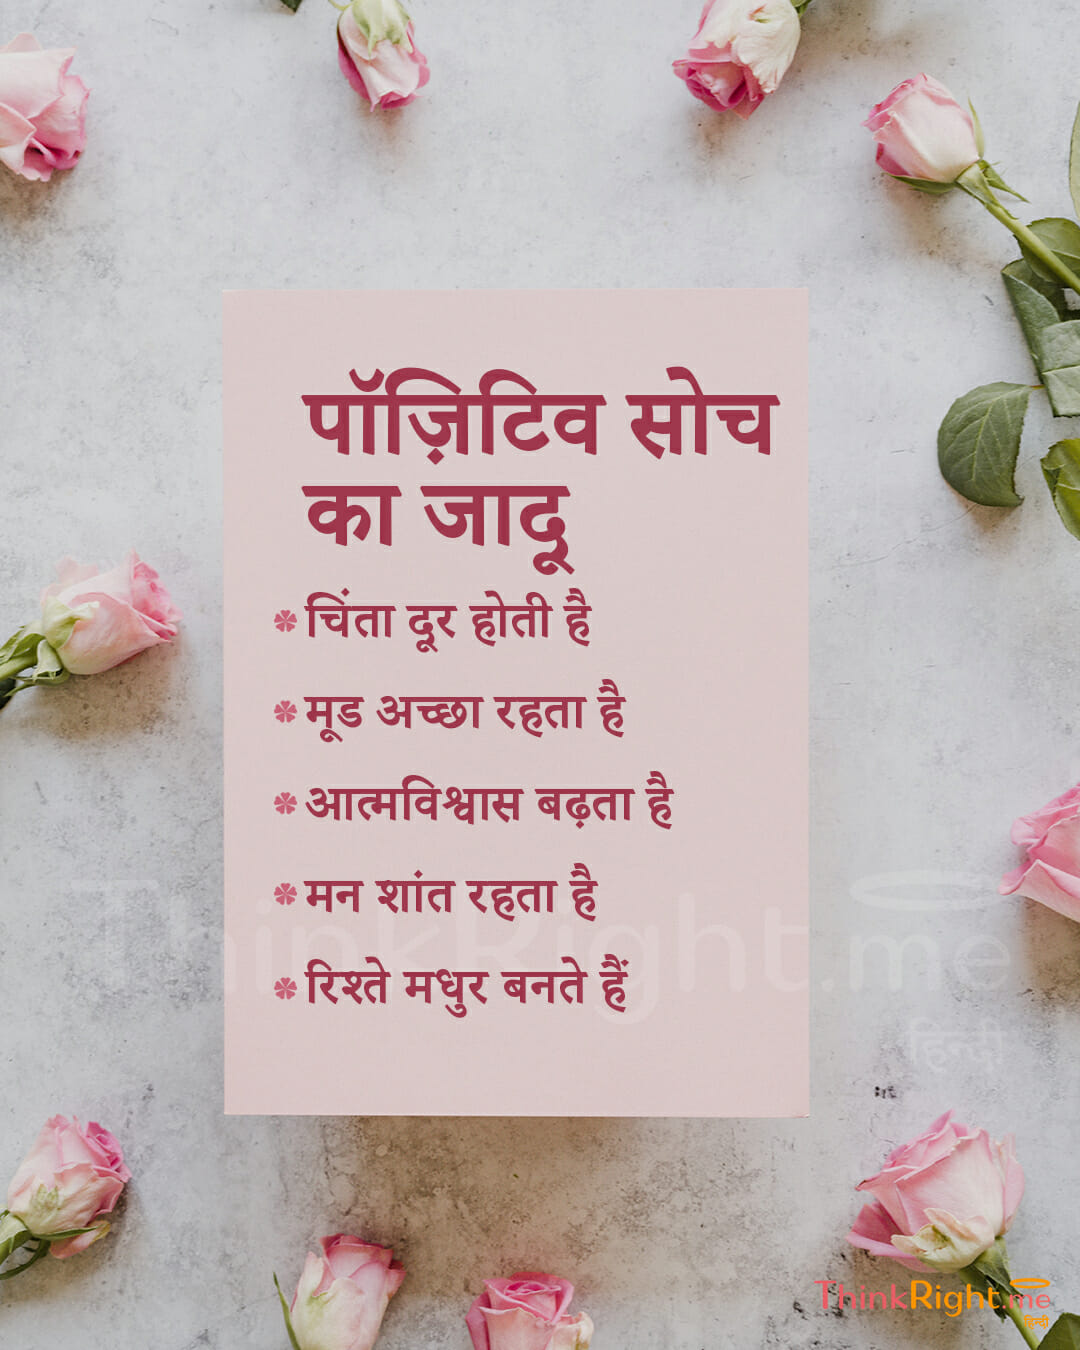 पॉज़िटिव सोच
का जादू
चिंता दूर होती है
मूड अच्छा रहता है
आत्मविश्वास बढ़ता है
मन शांत रहता है
रिश्ते मधुर बनते हैं
ThinkRight.me
हिन्दी
ThinkRight.me
हिन्दी